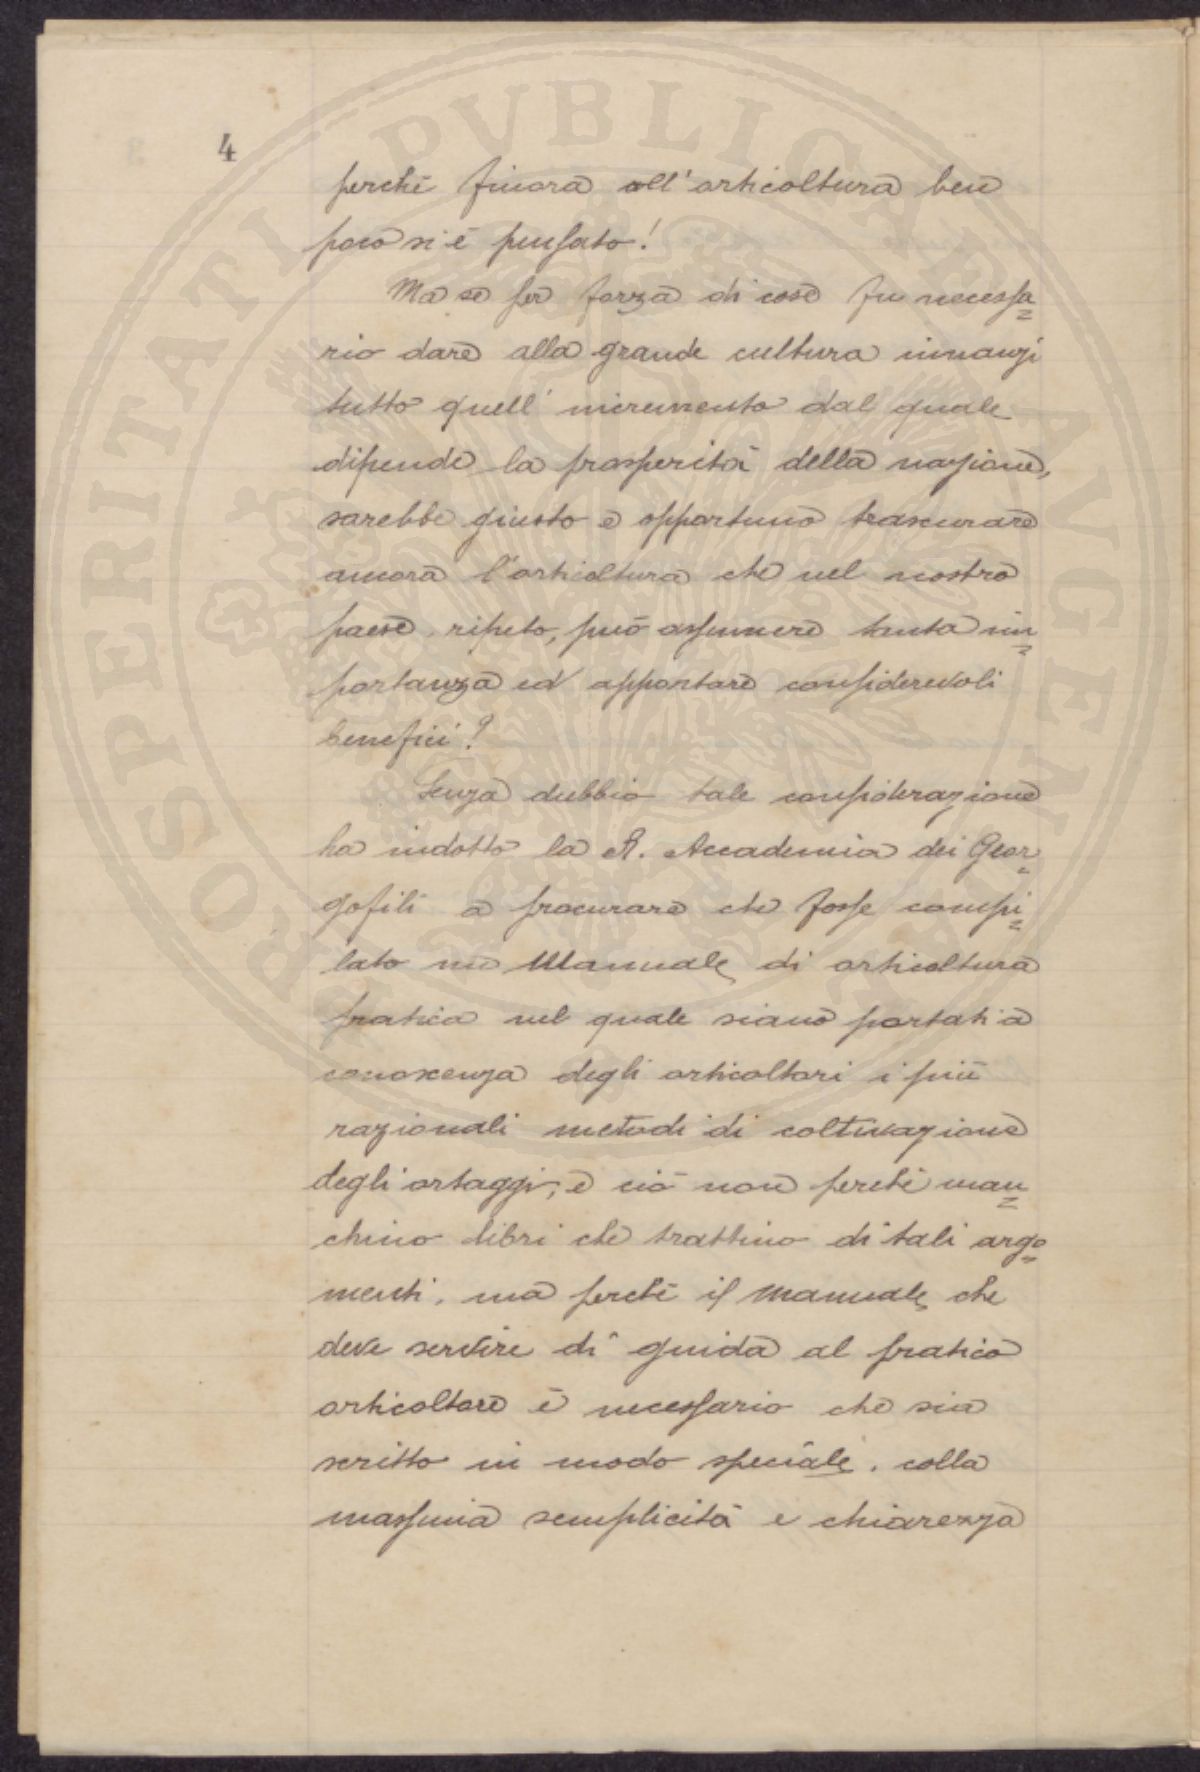 4
perchè finora all'orticoltura ben
poco si è pensato!
Ma se per forza di cose fu necessa=
rio dare alla grande cultura innanzi
tutto quell'incremento dal quale
dipende la prosperità della nazione,
sarebbe giusto e opportuno trascurare
ancora l'orticoltura che nel nostro
paese, ripeto, può assumere tanta im=
portanza ed apportare considerevoli
benefici?
Senza dubbio tale considerazione
ha indotto la R. Accademia dei Geor=
gofili a procurare che fosse compi=
lato un Manuale di orticoltura
pratica nel quale siano portati a
conoscenza degli orticoltori i più
razionali metodi di coltivazione
degli ortaggi; e ciò non perchè man=
chino libri che trattino di tali argo=
menti, ma perchè il manuale che
deve servire di guida al pratico
orticoltore è necessario che sia
scritto in modo speciale, colla
massima semplicità e chiarezza
PROSPERITATI PVBLICAE AVGENDAE